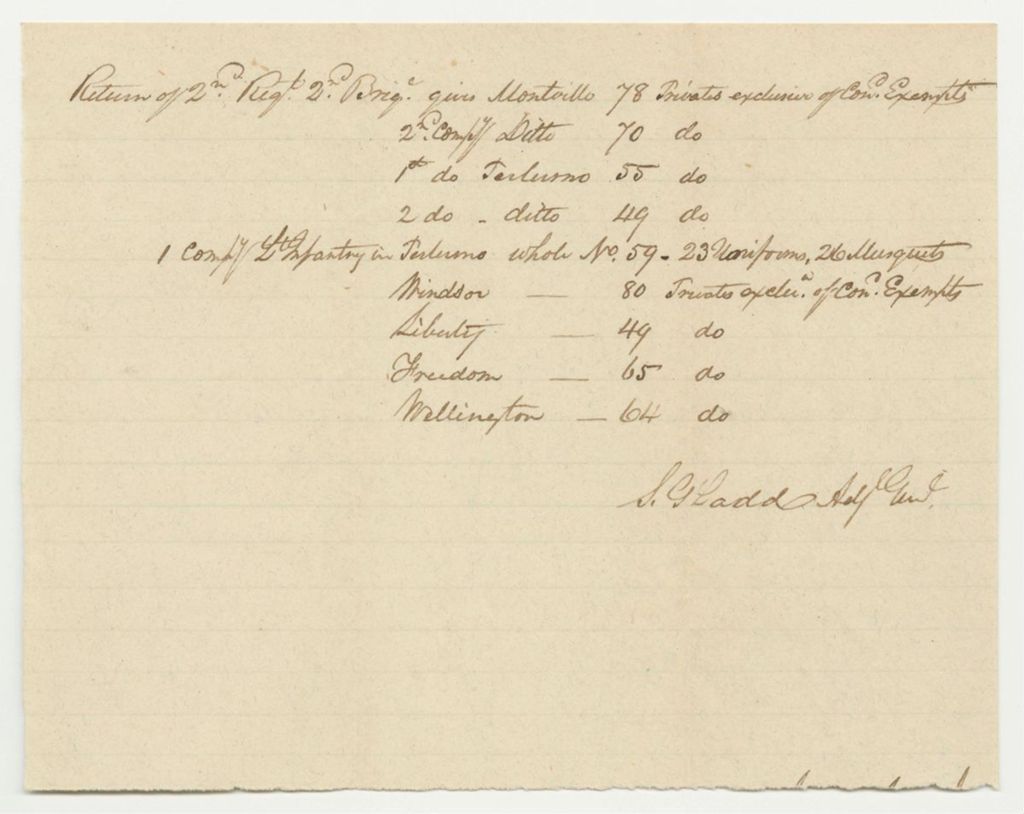 Return of 2nd Regt 2nd Brige gives Montville 78 Privates exclusive of Cond Exempts
2nd Compy Ditto 70 do
1st do Palermo 55 do
2 do - ditto 49 do
1 Compy Lt Infantry in Palermo whole No. 59 - 23 Uniforms, 26 Musquets
Windsor — 80 Privates exclu. of Cond Exempts
Liberty — 49 do
Freedom — 65 do
Wellington — 64 do
S. G Ladd Adjt Genl.